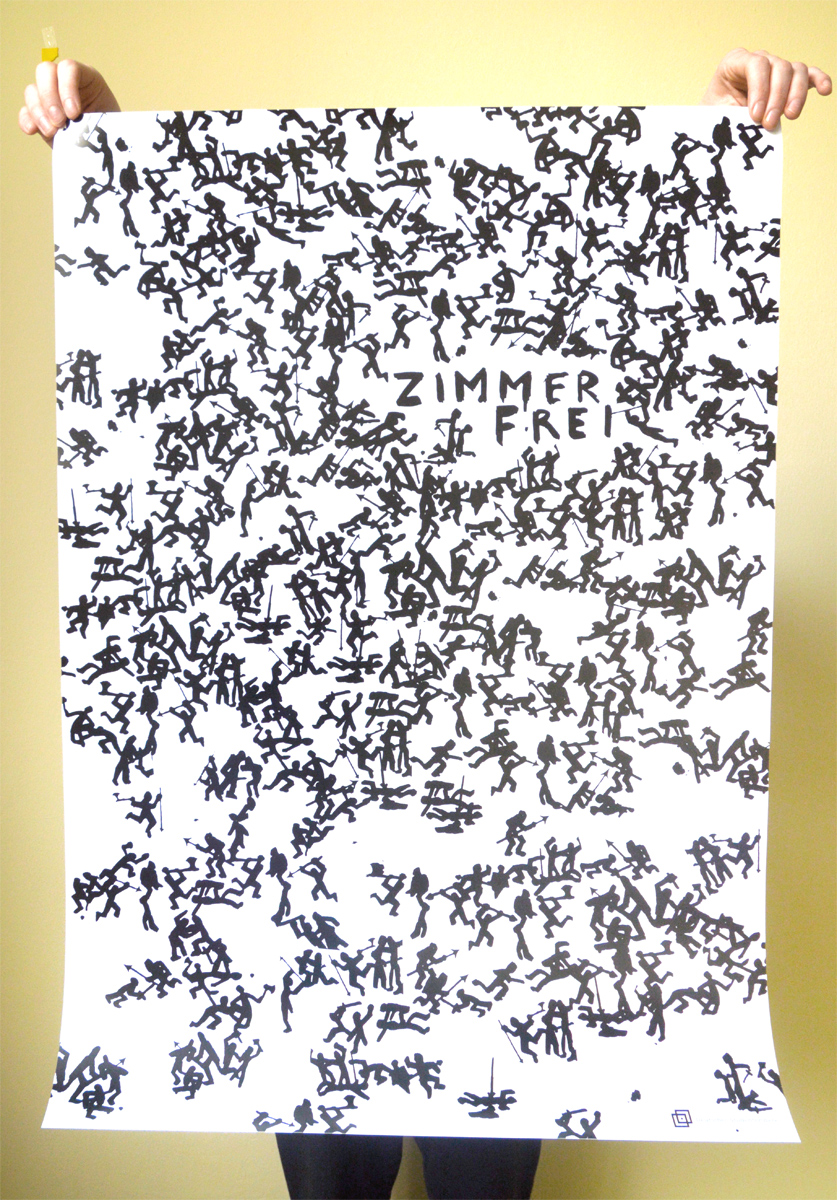 ZIMMER
FREI